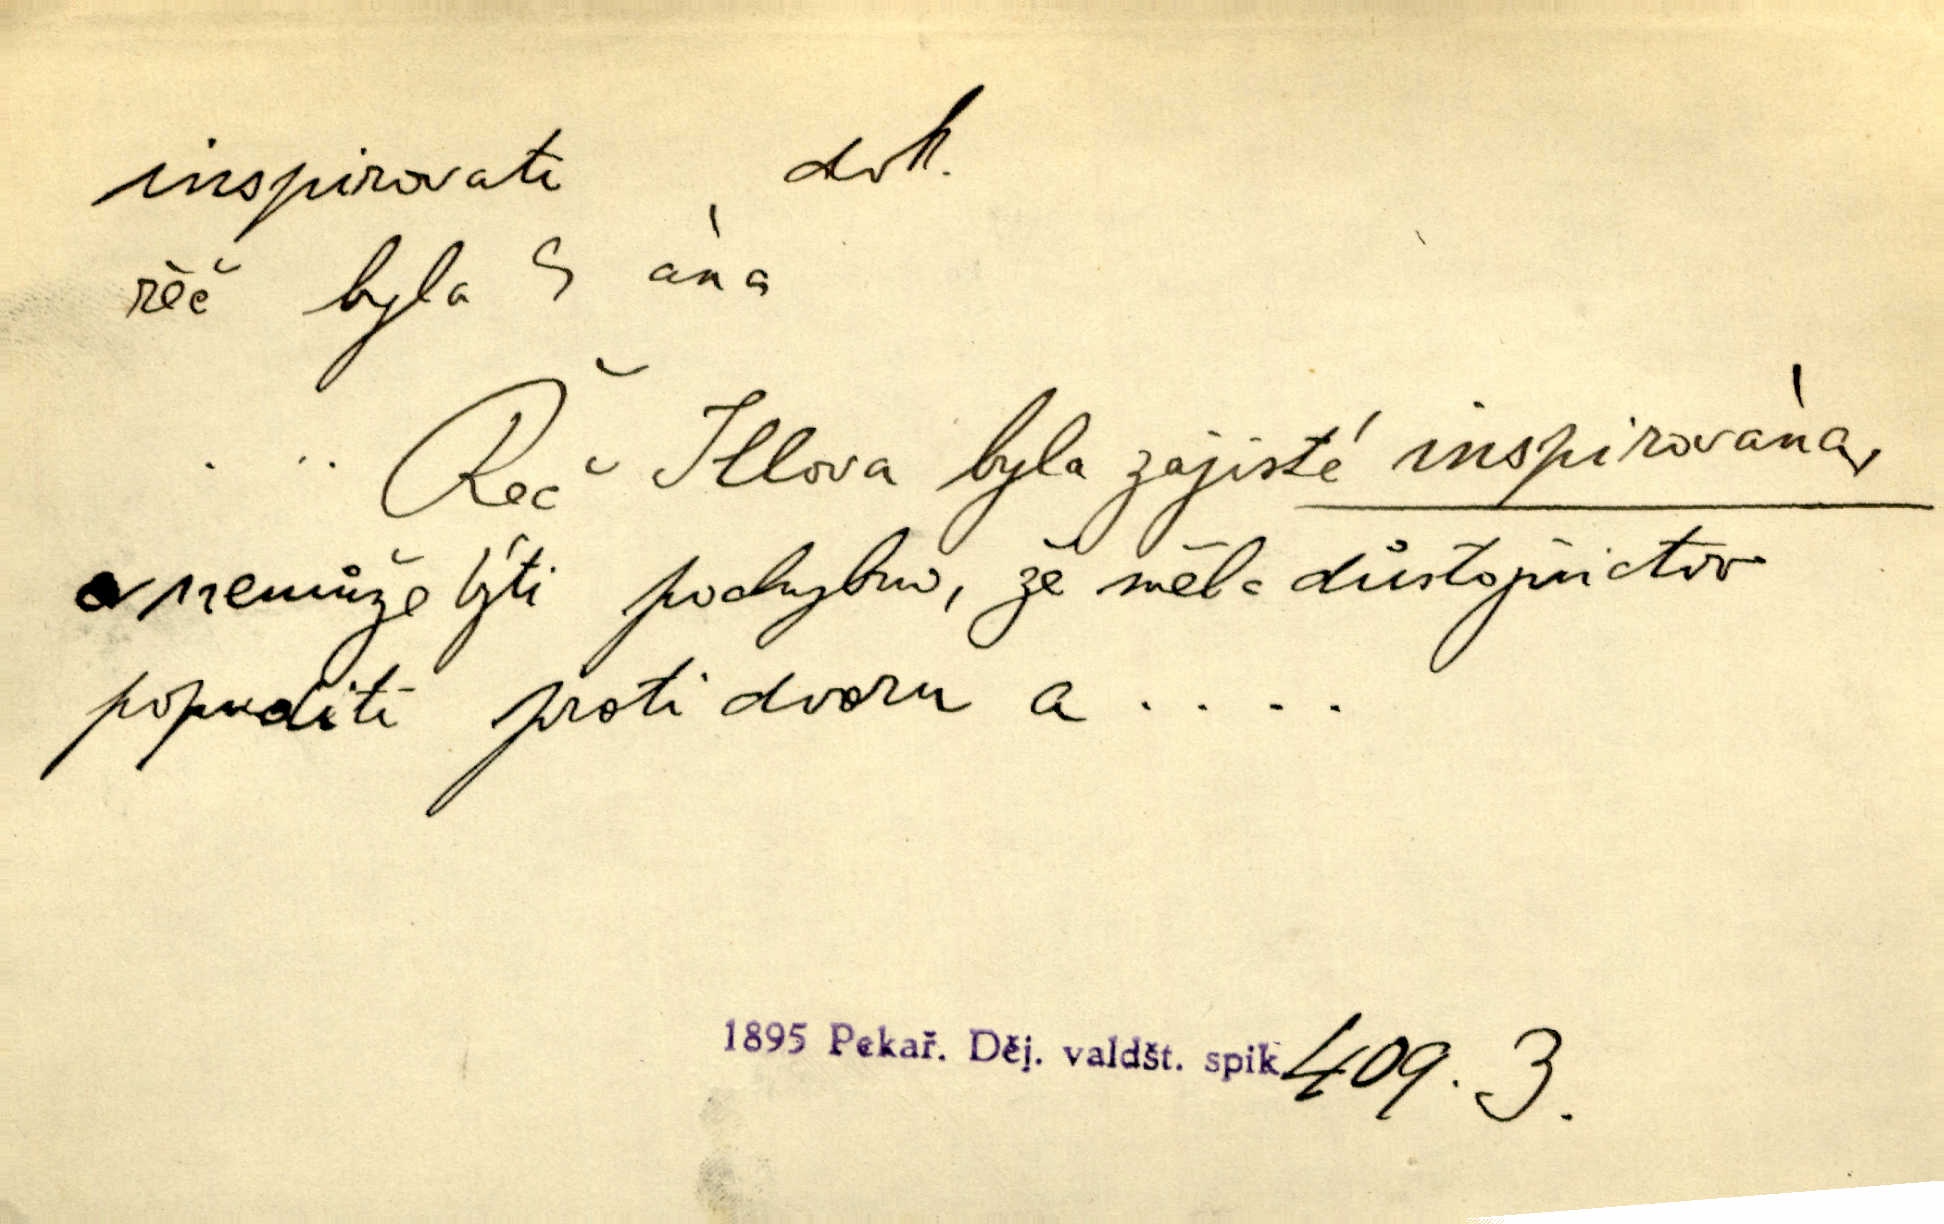 inspirovati dok.
řeč byla ~ ána
. . . Řeč Illova byla zajisté inspirována,
a nemůže býti pochybno, že měla důstojnictvo
popuditi proti dvoru a . . . .
1895 Pekař. Děj. valdšt. spik. 409. 3.